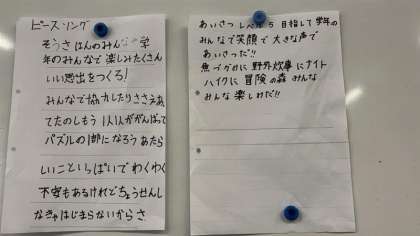 ピースソング
そうさ はんのみんな 学
年のみんなで 楽しみたくさん
いい思出をつくろ!
みんなで協力したりささえあ
てたのしもう 1人1人ががんばって
パズルの1部になろう あたら
しいこといっぱいでわくわく
不安もあるけれどちょうせんし
なきゃはじまらないからさ
あいさつ レベル5 目指して 学年の
みんなで 笑顔で 大きな声で
あいさつだ!!
魚づかみに 野外炊事に ナイト
ハイクに 冒険の森 みんな
みんな 楽しめだ!!